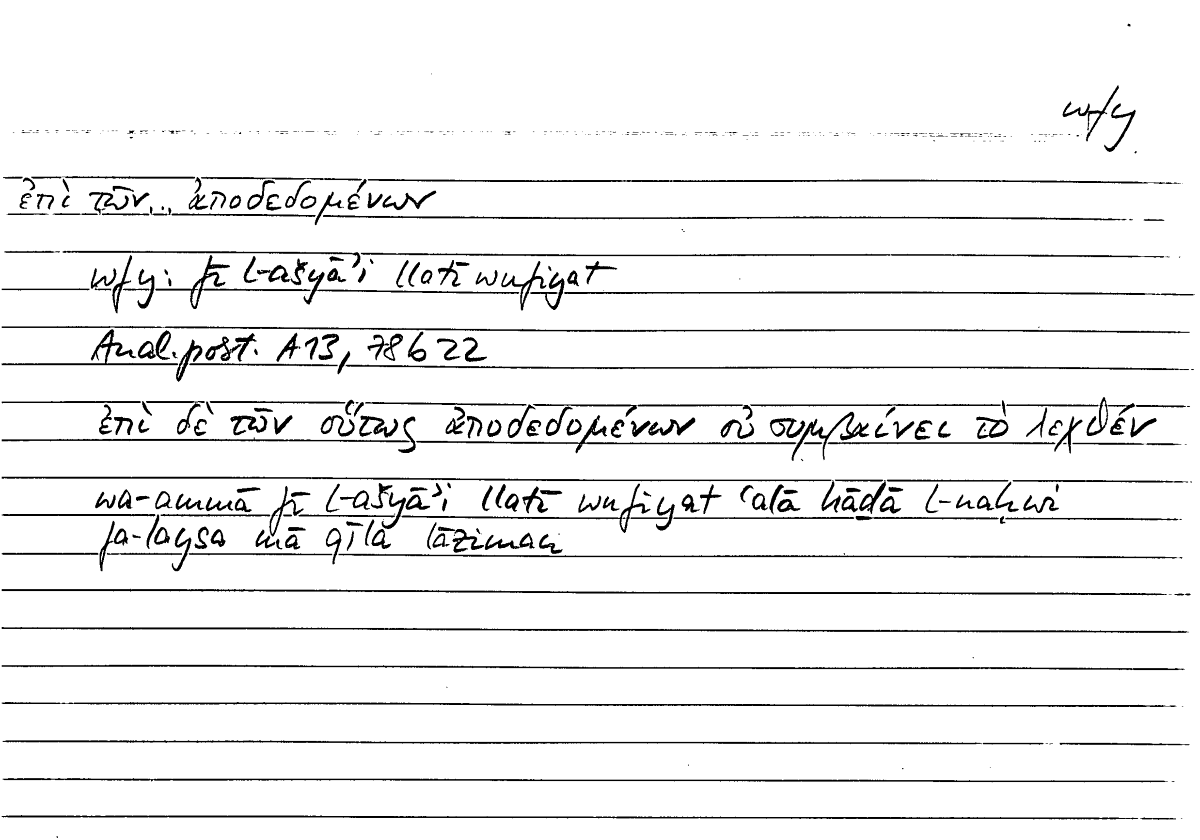 wfy
ἐπὶ τῶν... ἀποδεδομένων
wfy: fī l-ašyāʾi llatī wufiyat
Anal.post. A13, 78b22
ἐπὶ δὲ τῶν οὕτως ἀποδεδομένων οὐ συμβαίνει τὸ λεχθέν
wa-ammā fī l-ašyāʾi llatī wufiyat ʿalā hāḏā l-naḥwi
fa-laysa mā qīla lāziman